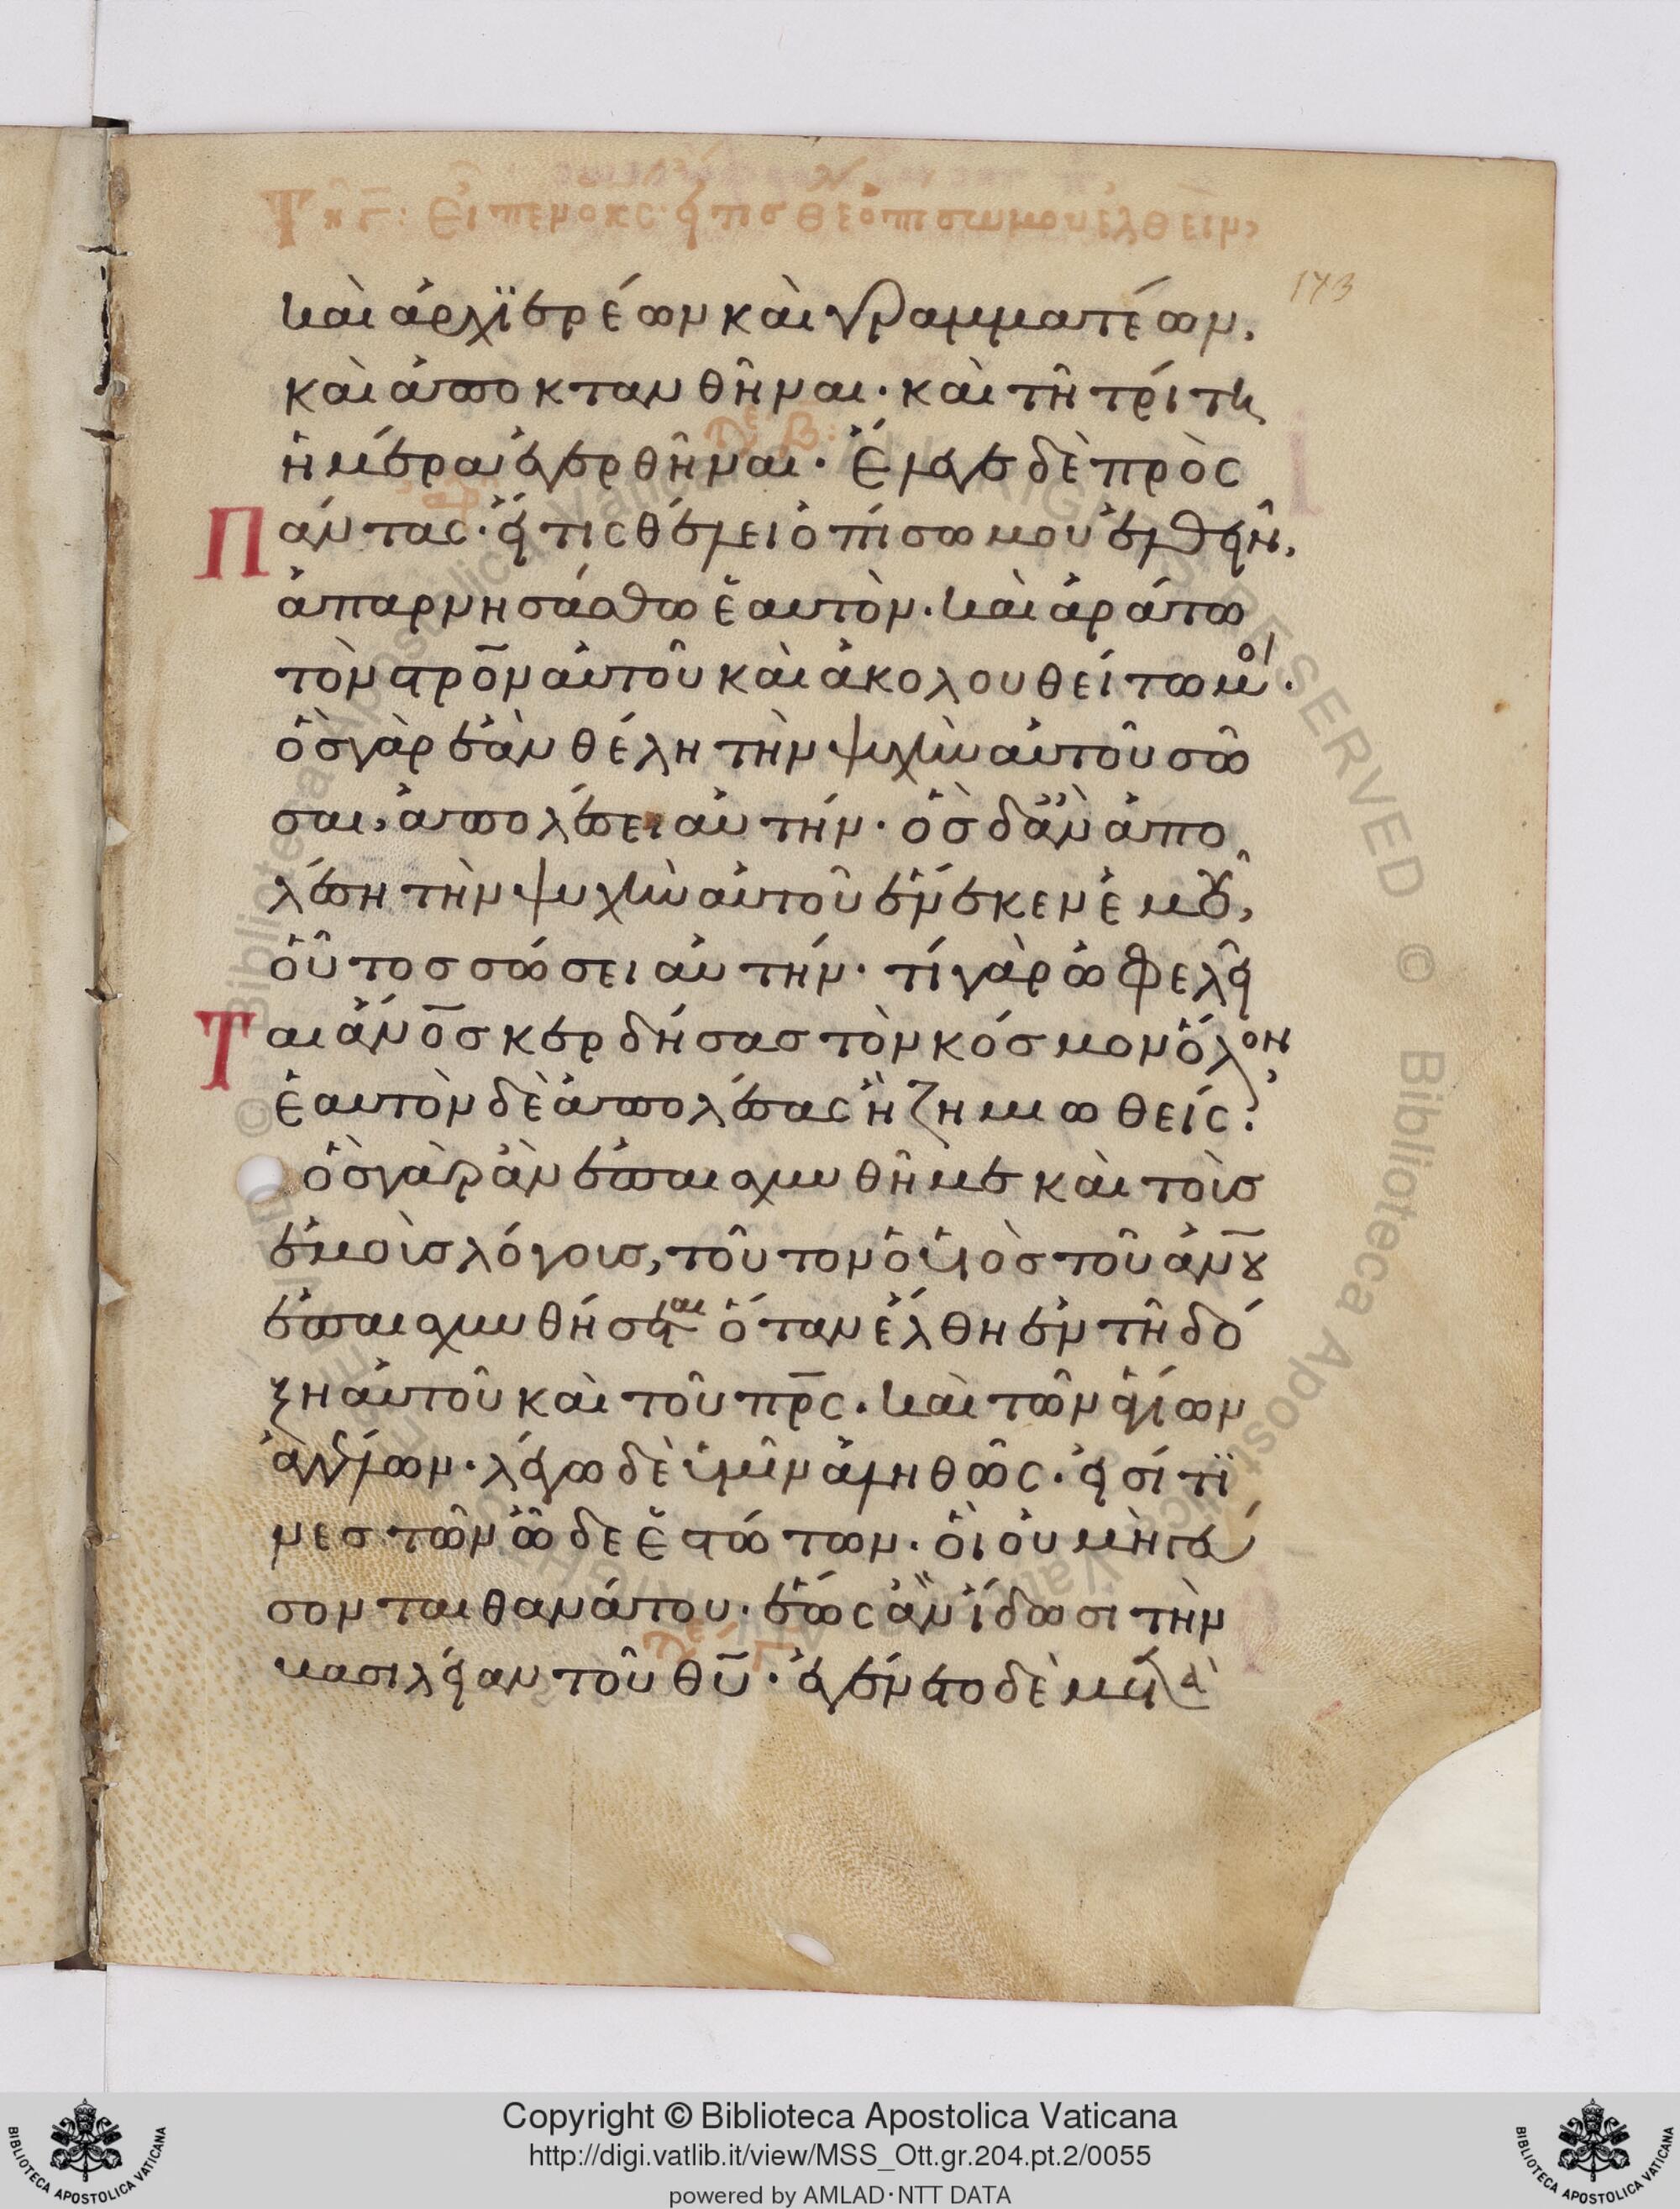 Τῆ ς: Εἶπεν ὁ κς· εἴ τισ θέ ὀπίσω μου ἐλθεῖν,
173
καὶ ἀρχϊερέων καὶ γραμματέων,
καὶ ἀποκτανθῆναι· καὶ τῆ τρίτη
ἡμέραι ἐγερθῆναι· Ἔλεγε δὲ πρὸς
Πάντας· εἴ τις θέλει ὀπίσω μου ἐλθεῖν,
ἀπαρνησάσθω ἑαυτὸν· καὶ ἀράτω
τὸν στρο̅ν αὐτοῦ καὶ ἀκολουθείτω μοι·
ὃσ γὰρ ἐὰν θέλη τὴν ψυχὴν αὐτοῦ σῶ
σαι, ἀπολέσει αὐτήν· ὃσ δ ἂν ἀπο
λέση τὴν ψυχὴν αὐτοῦ ἕνεκεν ἐμοῦ,
οὗτοσ σώσει αὐτήν· τί γὰρ ὠφελεῖ
Ται ἄνο̅σ κερδήσασ τὸν κόσμον ὅλον
ἑαυτὸν δὲ ἀπολέσας ἢ ζημιωθείς;
ὃσ γὰρ ἂν ἐπαισχυνθῆ με καὶ τοὺσ
ἐμοὺσ λόγουσ, τοῦτον ὁ υἱὸσ τοῦ ἀν̅ου
ἐπαισχυνθήσεται ὅταν ἔλθη ἐν τῆ δό
ξη αὐτοῦ καὶ τοῦ πρ̅ς· καὶ τῶν ἁγίων
ἀγγέλων· λέγω δὲ ὑμῖν ἀληθῶς· εἰσί τϊ
νεσ τῶν ὧδε ἑστώτων· οἳ οὐ μὴ γεύ
σονται θανάτου· ἕως ἂν ἴδωσι τὴν
βασιλείαν τοῦ θυ̅· ἐγένετο δὲ μετὰ
Copyright © Biblioteca Apostolica Vaticana
http://digi.vatlib.it/view/MSS_Ott.gr.204.pt.2/0055
powered by AMLAD·NTT DATA
BIBLIOTECA APOSTOLICA VATICANA
BIBLIOTECA APOSTOLICA VATICANA